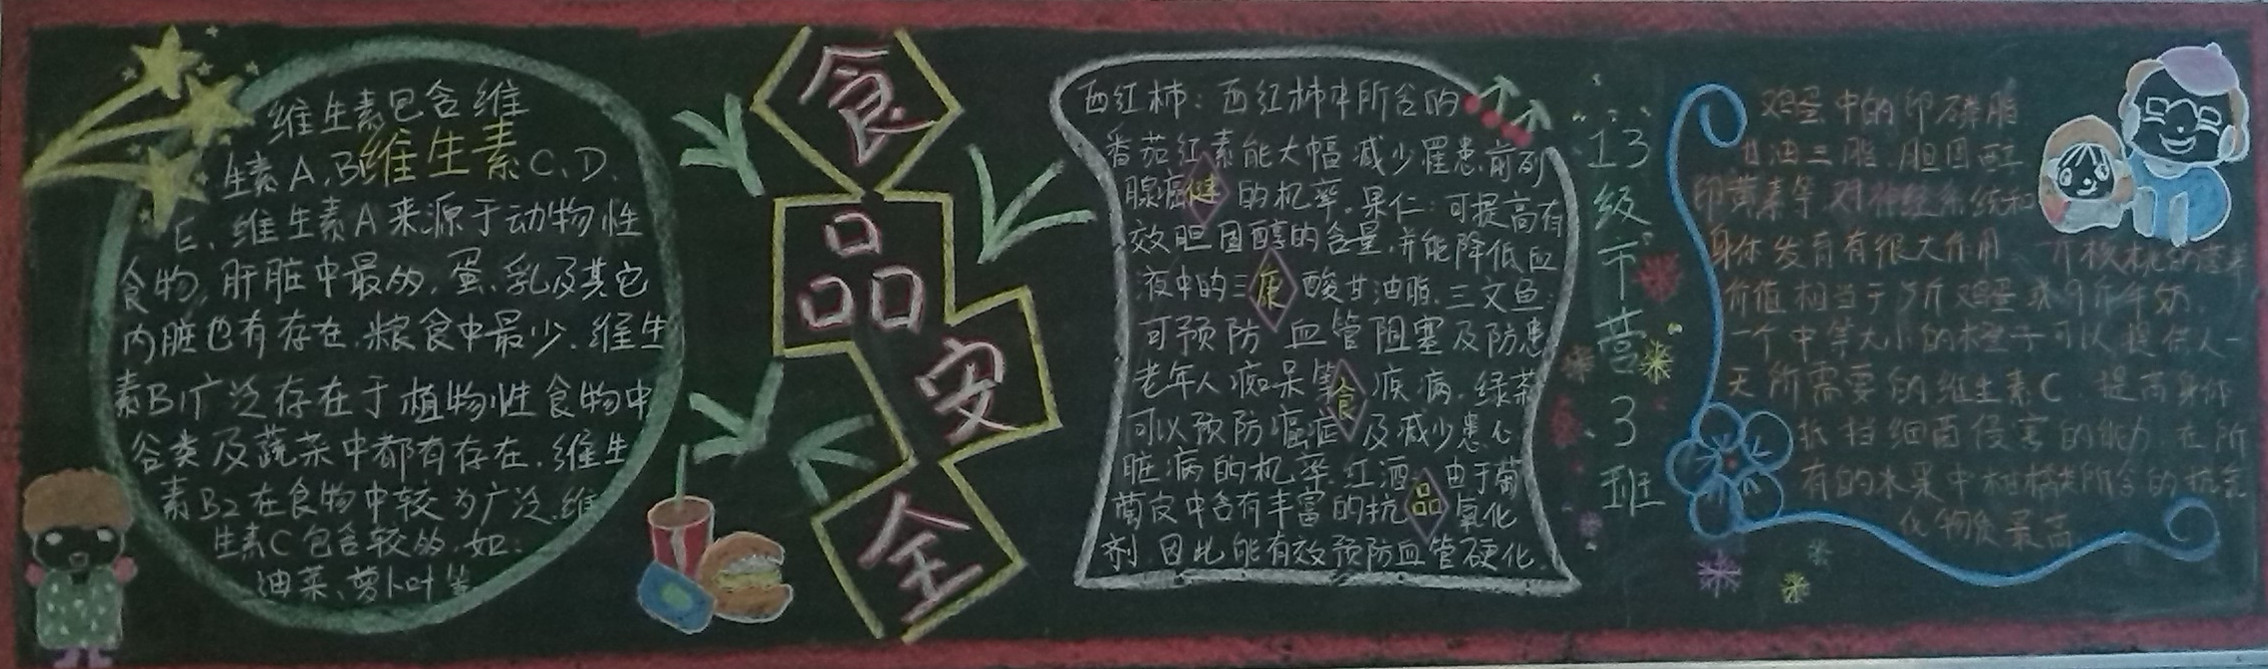 维生素包含维
生素A、B维生素C、D、
E、维生素A来源于动物性
食物,肝脏中最多,蛋、乳及其它
内脏也有存在.粮食中最少.维生
素B1广泛存在于植物性食物中
谷类及蔬菜中都有存在.维生
素B2在食物中较为广泛.维
生素C包含较多.如:
油菜、萝卜叶等
食
品
安
全
西红柿:西红柿中所含的
番茄红素能大幅减少罹患前列
腺癌健的机率.果仁:可提高有
效胆固醇的含量,并能降低血
液中的三康酸甘油脂.三文鱼:
可预防血管阻塞及防患
老年人痴呆等食疾病.绿茶
可以预防癌症及减少患心
脏病的机率.红酒:由于葡
萄皮中含有丰富的抗品氧化
剂.因此能有效预防血管硬化.
13
级
干
营
3
班
鸡蛋中的卵磷脂
甘油三脂.胆固醇
卵黄素等.对神经系统和
身体发育有很大作用.一斤核桃的营养
价值相当于5斤鸡蛋或9斤牛奶.
一个中等大小的橙子可以提供人一
天所需要的维生素C.提高身体
抵挡细菌侵害的能力.在所
有的水果中柑橘类所含的抗氧
化物质最高.